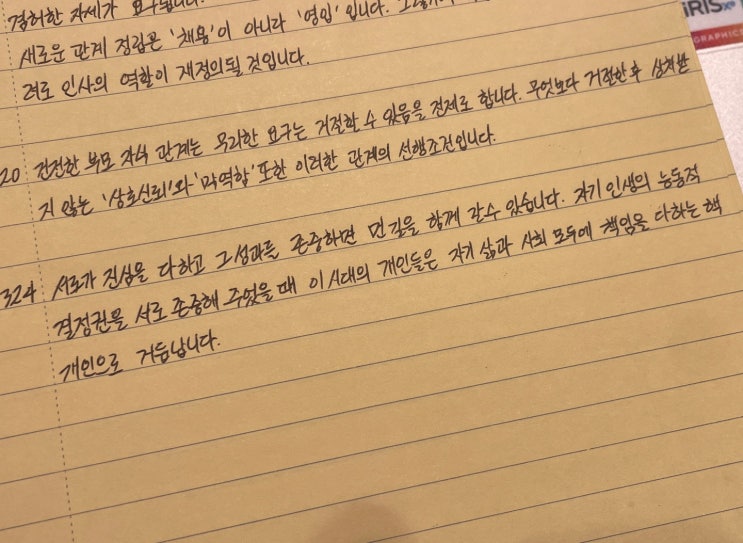 겸허한 자세가 요구됩니다.
새로운 관계 정립은 '채용'이 아니라 '영입'입니다.
려로 인사의 역할이 재정의될 것입니다.
20 건전한 부모 자식 관계는 무리한 요구는 거절할 수 있음을 전제로 합니다. 무엇보다 거절한 후 상처받
지 않는 '상호신뢰'와 '면역함' 또한 이러한 관계의 선행조건입니다.
324 서로가 진심을 다하고 그 성과를 존중하면 먼 길을 함께 갈 수 있습니다. 자기 인생의 능동적
결정권을 서로 존중해 주었을 때 이 시대의 개인들은 자기 삶과 사회 모두에 책임을 다하는 핵
개인으로 거듭납니다.
IRIS
GRAPHICS